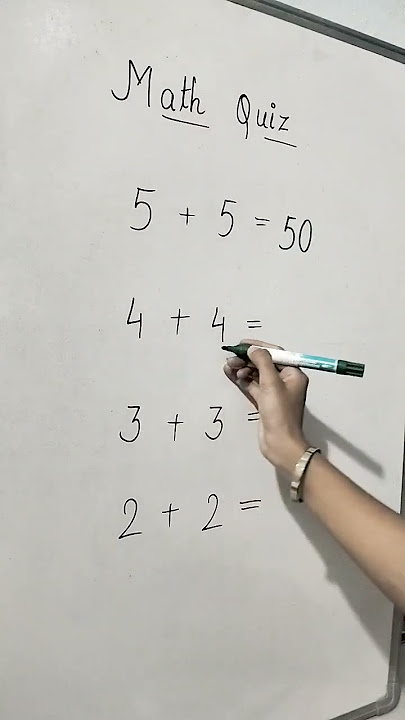 Math Quiz
5 + 5 = 50
4 + 4 =
3 + 3 =
2 + 2 =